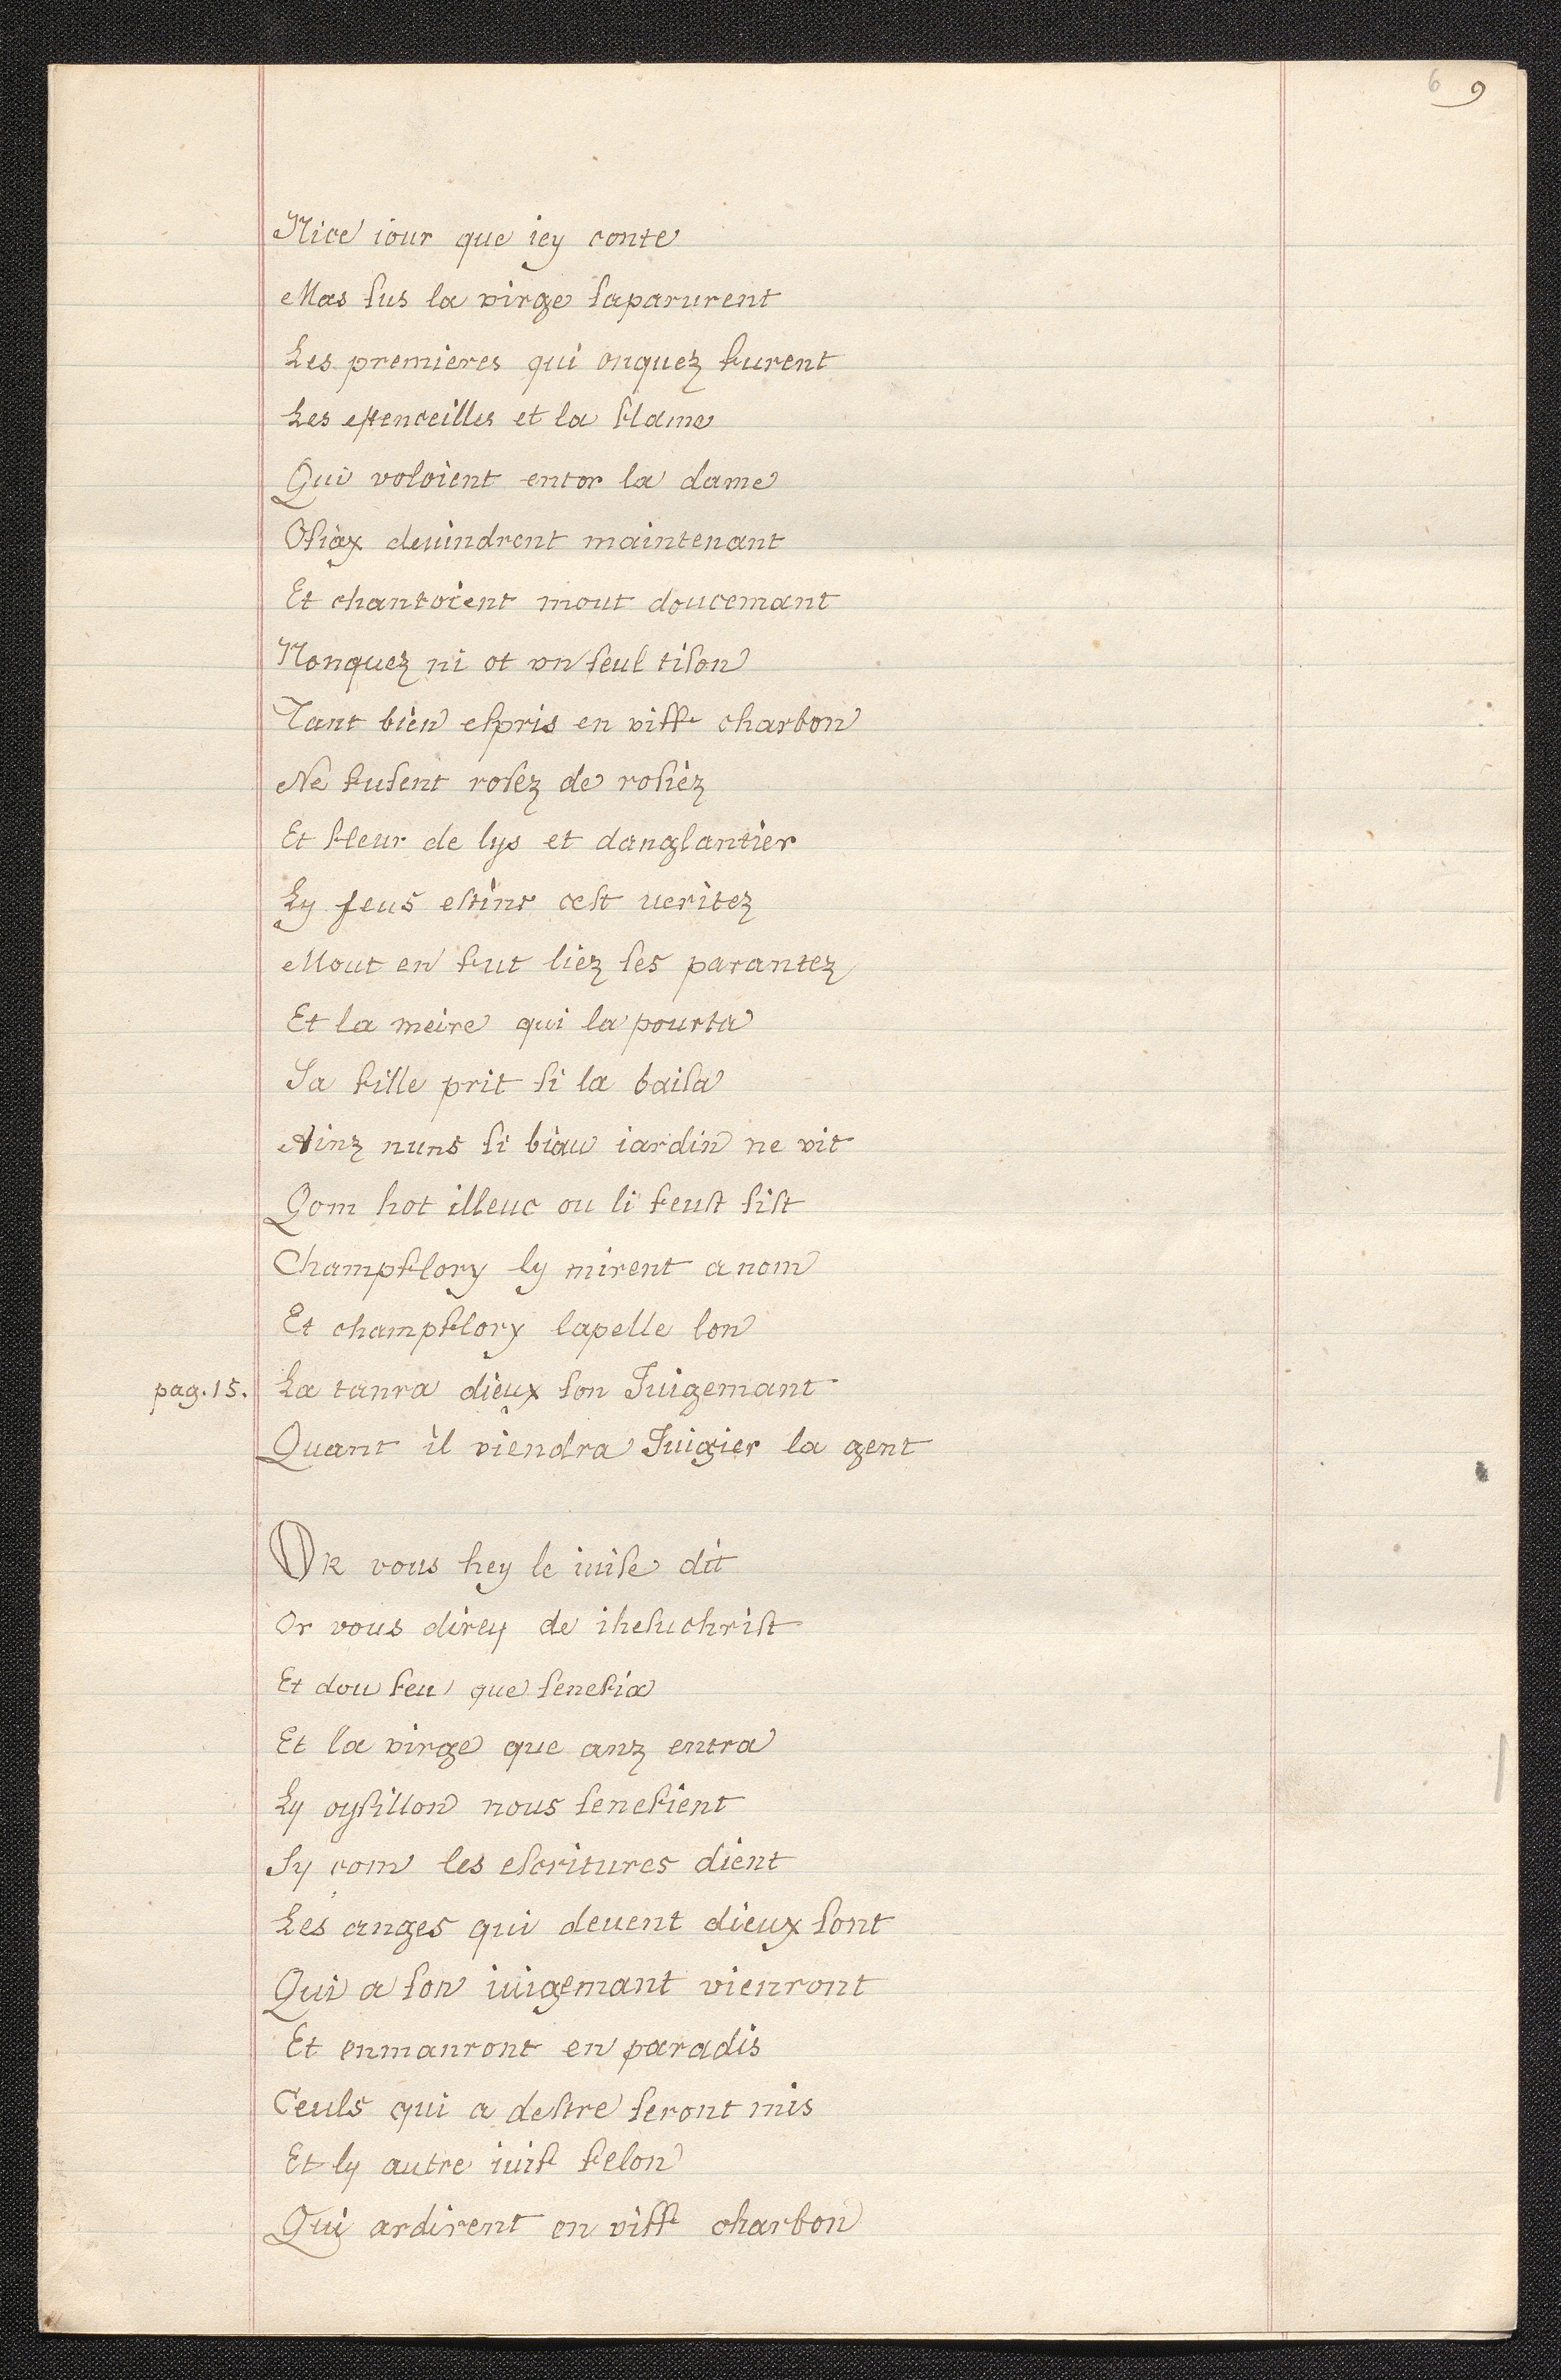 6 9
Nice iour que iey conte
Mas ſus la virge ſaparurent
Les premieres qui onquez furent
Les eſtenceilles et la flame
Qui voloient entor la dame
Oſiax deuindrent maintenant
Et chantoient mout doucemant
Nonquez ni ot vn ſeul tiſon
Tant bien eſpris en viff charbon
Ne fuſent roſez de roſiez
Et fleur de lys et danglantier
Ly feus eſtint ceſt ueritez
Mout en fut liez ſes parantez
Et la meire qui la pourta
Sa fille prit ſi la baiſa
Ainz nuns ſi biau iardin ne vit
Qom hot illeuc ou li feuſt ſiſt
Champflory ly mirent a nom
Et champflory lapelle lon
pag. 15. La tanra dieux ſon Juigemant
Quant il viendra Juigier la gent
OR vous hey le iuiſe dit
Or vous direy de iheſuchriſt
Et dou feu que ſenefia
Et la virge que anz entra
Ly oyſillon nous ſenefient
Sy com les eſcritures dient
Les anges qui deuent dieux ſont
Qui a ſon iuigemant vienront
Et enmanront en paradis
Ceuls qui a deſtre ſeront mis
Et ly autre iuif felon
Qui ardirent en viff charbon